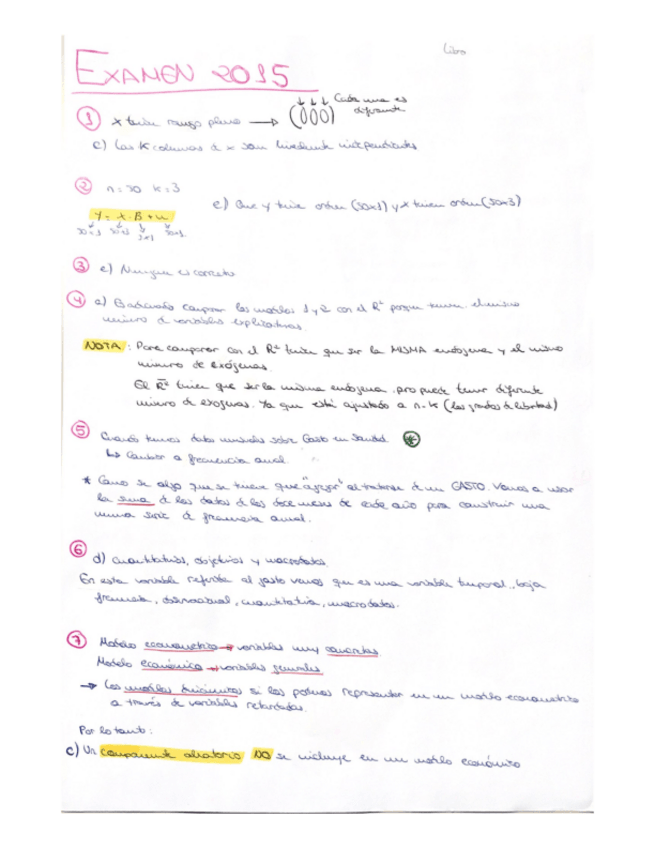 Libro
EXAMEN 2015
① X tiene rango pleno → (000) Cada una es diferente
c) Las K columnas de x son linealmente independientes
② n=30 k=3
e) Que Y tiene orden (30x1) y X tienen orden (30x3)
Y = X·B + u
30x1 30x3 3x1 30x1
③ e) Ninguna es correcta
④ a) Es adecuado comparar los modelos 1 y 2 con el R² porque tienen el mismo
número de variables explicativas.
NOTA: Para comparar con el R² tiene que ser la MISMA endógena y el mismo
número de exógenas.
El R̄² tiene que ser la misma endógena pro puede tener diferente
número de exógenas. Ya que está ajustado a n-k (los grados de libertad)
⑤ Cuando tienes datos mensuales sobre Gasto en Sanidad. *
↳ Cambiar a frecuencia anual.
* Como es algo que se tiene que "agregar" al tratarse de un GASTO. Vamos a usar
la suma de los datos de los doce meses de cada año para construir una
nueva serie de frecuencia anual.
⑥ d) cuantitativos, objetivos y macrodatos.
En esta variable referida al gasto vemos que es una variable temporal, baja
frecuencia, observacional, cuantitativa, macrodatos.
⑦ Modelo econométrico → variables muy concretas.
Modelo económico → variables generales
→ Los modelos dinámicos si los podemos representar en un modelo econométrico
a través de variables retardadas.
Por lo tanto:
c) Un componente aleatorio NO se incluye en un modelo económico